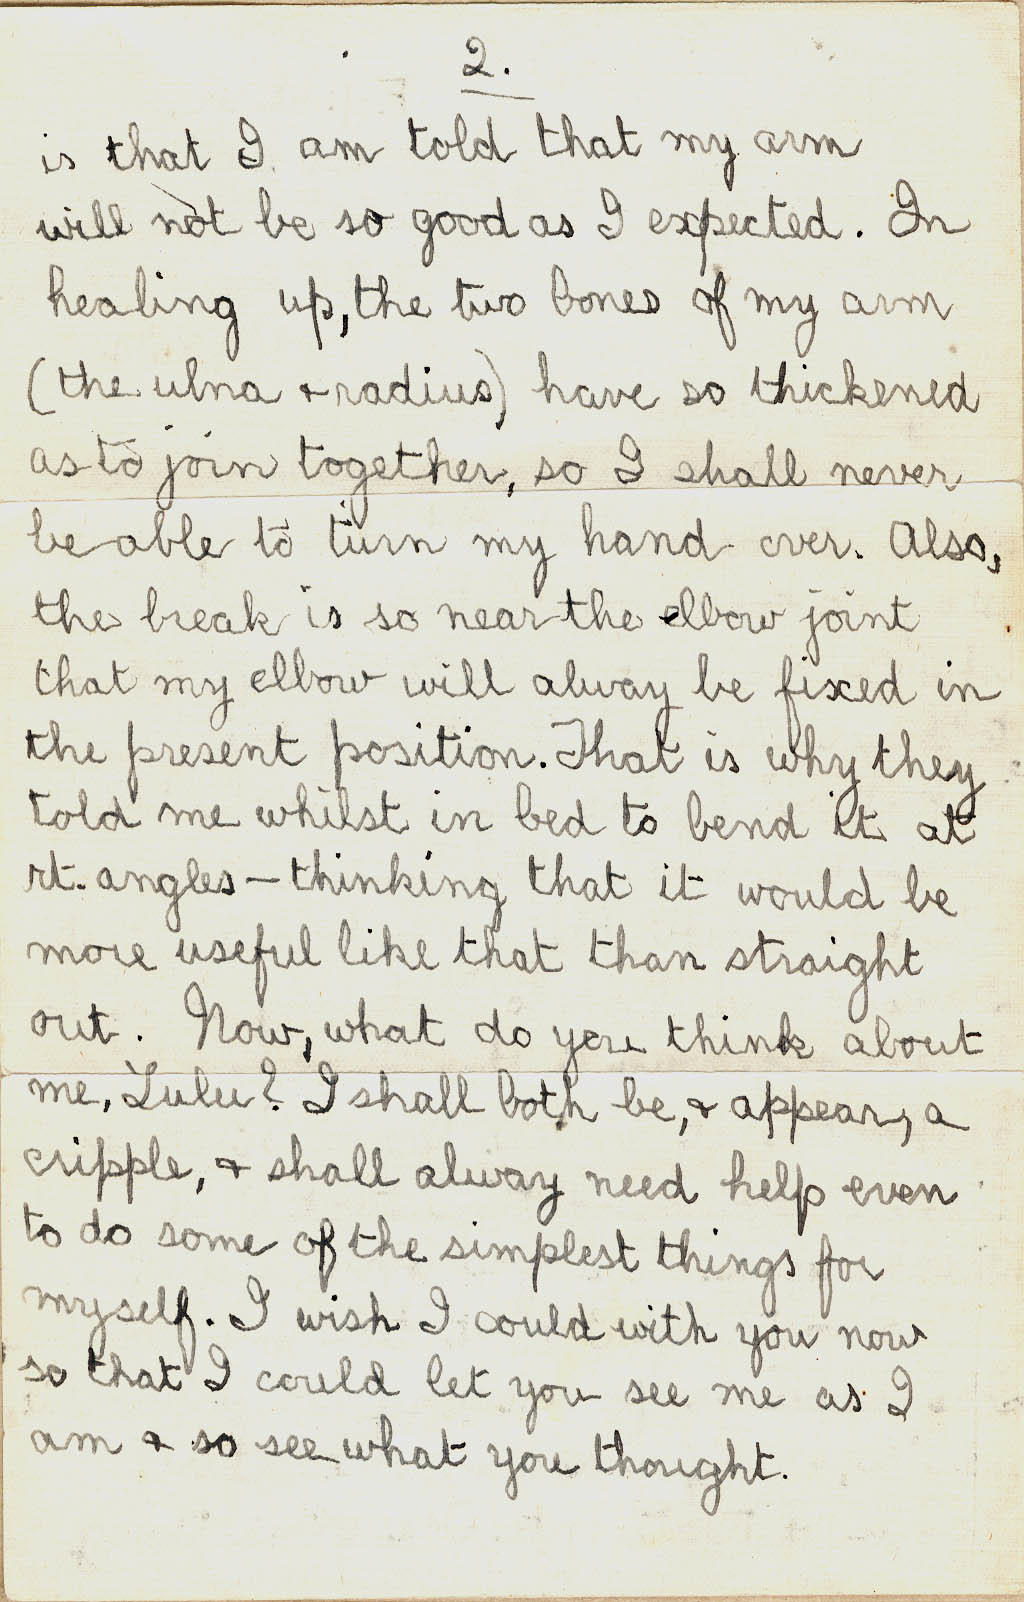 2.
is that I am told that my arm
will not be so good as I expected. In
healing up, the two bones of my arm
(the ulna & radius) have so thickened
as to join together, so I shall never
be able to turn my hand over. Also,
the break is so near the elbow joint
that my elbow will alway be fixed in
the present position. That is why they
told me whilst in bed to bend it at
rt. angles – thinking that it would be
more useful like that than straight
out. Now, what do you think about
me, Lulu? I shall both be, & appear, a
cripple, & shall alway need help even
to do some of the simplest things for
myself. I wish I could with you now
so that I could let you see me as I
am & so see what you thought.